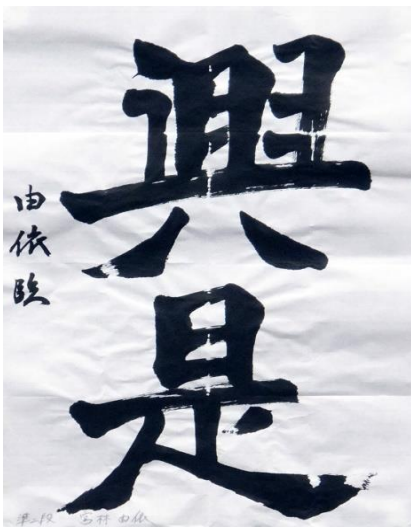 興是
由依臨
準二段 由依